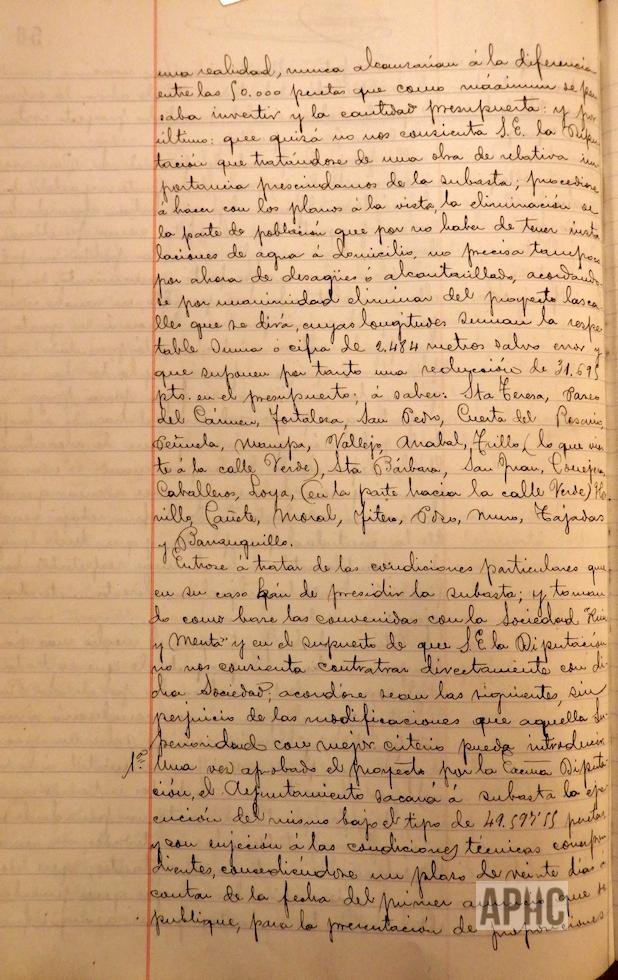 una realidad, nunca alcanzarían á la diferencia
entre las 50.000 pesetas que como máximun se pen
saba invertir y la cantidad presupuesta: y por
último: que quizá no nos consienta S.E. la Dipu
tación que tratándose de una obra de relativa im
portancia prescindamos de la subasta; procedióse
á hacer con los planos á la vista la eliminación de
la parte de población que por no haber de tener insta
laciones de agua á domicilio, no precisa tampoco
por ahora de desagües ó alcantarillado, acordándo
se por unanimidad eliminar del proyecto las ca
lles que se dirá, cuyas longitudes suman la respe
table suma ó cifra de 2.484 metros salvo error y
que suponen por tanto una reducción de 31.695
pts. en el presupuesto; á saber: Sta Teresa, Paseo
del Cármen, Fortaleza, San Pedro, Cuesta del Rosario,
Peñuela, Mampa, Vallejo, Anabal, Trillo, (lo que vier
te á la calle Verde), Sta Bárbara, San Juan, Conejera
Caballeros, Loya, (en la parte hacia la calle Verde)
Cañete, Moral, Fitero, Pozo, Muro, Tajadas
y Barranquillo.
Entrose á tratar de las condiciones particulares que
en su caso hán de presidir la subasta; y toman
do como base las convenidas con la Sociedad "Ruiz
y Menta" y en el supuesto de que S.E. la Diputación
no nos consienta contratrar directamente con di
cha Sociedad, acordóse sean las siguientes, sin
perjuicio de las modificaciones que aquella Su
perioridad con mejor criterio pueda introducir
1ª Una vez aprobado el proyecto por la Excma Diputa
ción, el Ayuntamiento sacará á subasta la eje
cución del mismo bajo el tipo de 49.597'55 pesetas
y con sujeción á las condiciones técnicas correspon
dientes, concediéndose un plazo de veinte dias á
contar de la fecha del primer anuncio que se
publique, para la presentación de proposiciones
APHC